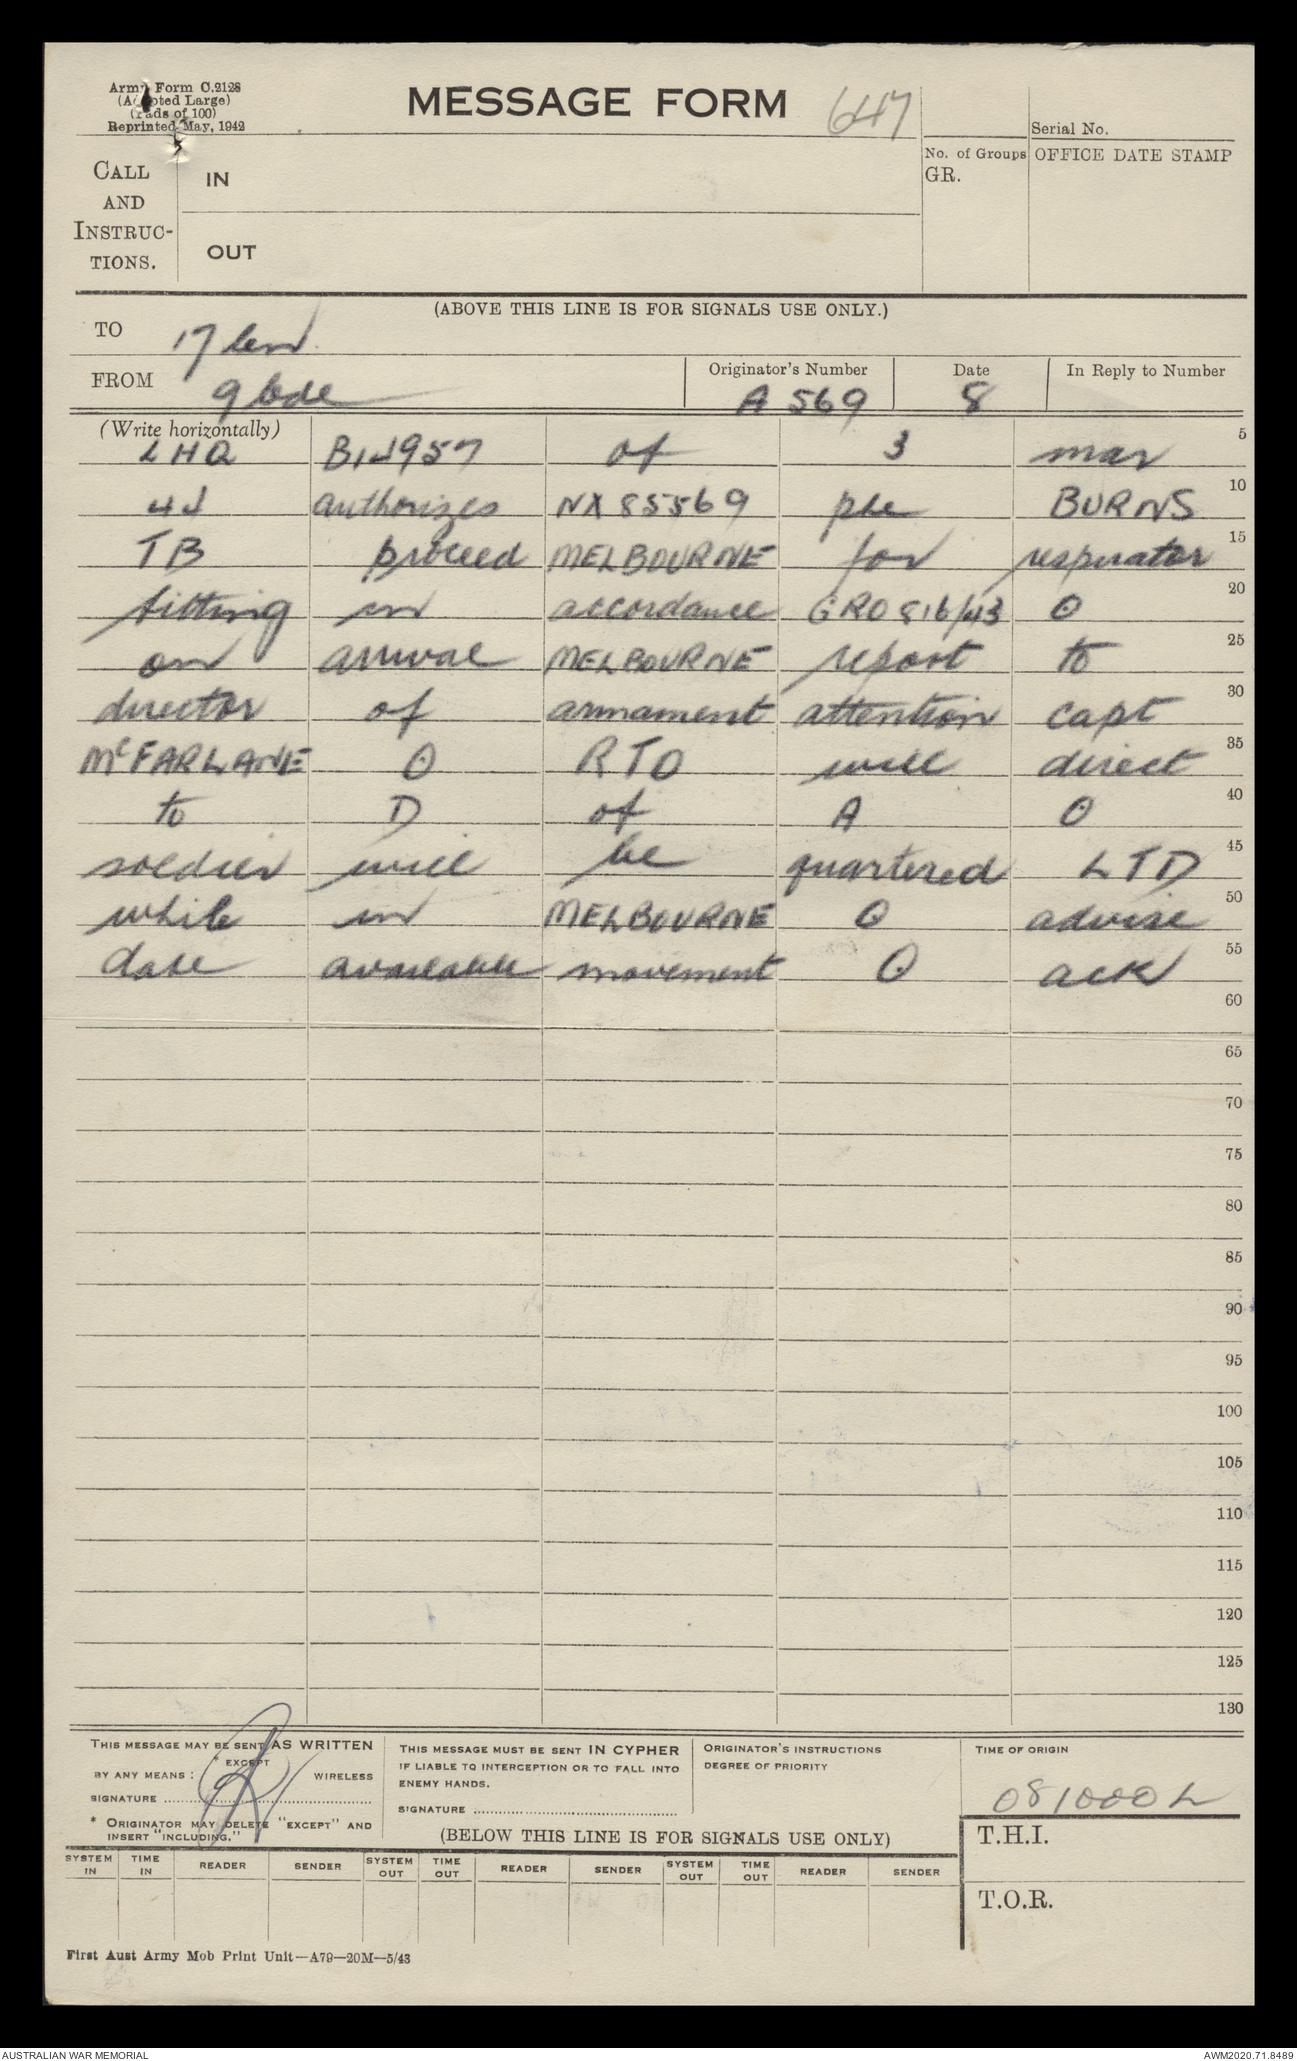 Army Form C.2128
(Adopted Large)
(Pads of 100)
Reprinted May, 1942
MESSAGE FORM
647
Serial No.
CALL AND INSTRUCTIONS.
IN
OUT
No. of Groups
GR.
OFFICE DATE STAMP
(ABOVE THIS LINE IS FOR SIGNALS USE ONLY.)
TO 17
FROM 9 bde
Originator's Number A 569
Date 8
In Reply to Number
(Write horizontally)
LHQ BJJ957 of 3 mar 5
44 authorizes NX85569 pte BURNS 10
TB proceed MELBOURNE for respirator 15
fitting in accordance GRO 816/43 ʘ 20
on arrival MELBOURNE report to 25
director of armament attention capt 30
McFARLANE ʘ RTO will direct 35
to D of A ʘ 40
soldier will be quartered LTD 45
while in MELBOURNE ʘ advise 50
date available movement ʘ ack 55
60
65
70
75
80
85
90
95
100
105
110
115
120
125
130
THIS MESSAGE MAY BE SENT AS WRITTEN
* EXCEPT
BY ANY MEANS : WIRELESS
SIGNATURE
* ORIGINATOR MAY DELETE "EXCEPT" AND
INSERT "INCLUDING."
THIS MESSAGE MUST BE SENT IN CYPHER
IF LIABLE TO INTERCEPTION OR TO FALL INTO
ENEMY HANDS.
SIGNATURE
ORIGINATOR'S INSTRUCTIONS
DEGREE OF PRIORITY
TIME OF ORIGIN
081000L
(BELOW THIS LINE IS FOR SIGNALS USE ONLY)
T.H.I.
SYSTEM IN TIME IN READER SENDER SYSTEM OUT TIME OUT READER SENDER SYSTEM OUT TIME OUT READER SENDER
T.O.R.
First Aust Army Mob Print Unit—A79—20M—5/43
AUSTRALIAN WAR MEMORIAL AWM2020.71.8489